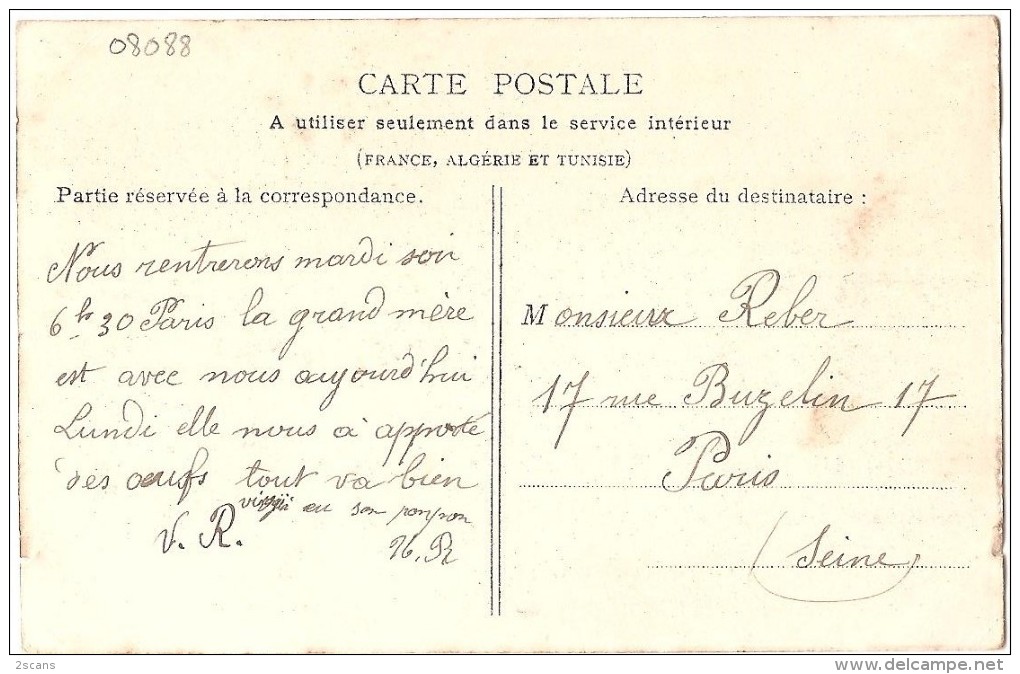 08088
CARTE POSTALE
A utiliser seulement dans le service intérieur
(FRANCE, ALGÉRIE ET TUNISIE)
Partie réservée à la correspondance.
Nous rentrerons mardi soir
6h 30 Paris la grand mère
est avec nous aujourd'hui
Lundi elle nous à apporté
des œufs tout va bien
au son ponpon
V. R.
R
Adresse du destinataire :
Monsieur Reber
17 rue Buzelin 17
Paris
(Seine)
2scans
www.delcampe.net